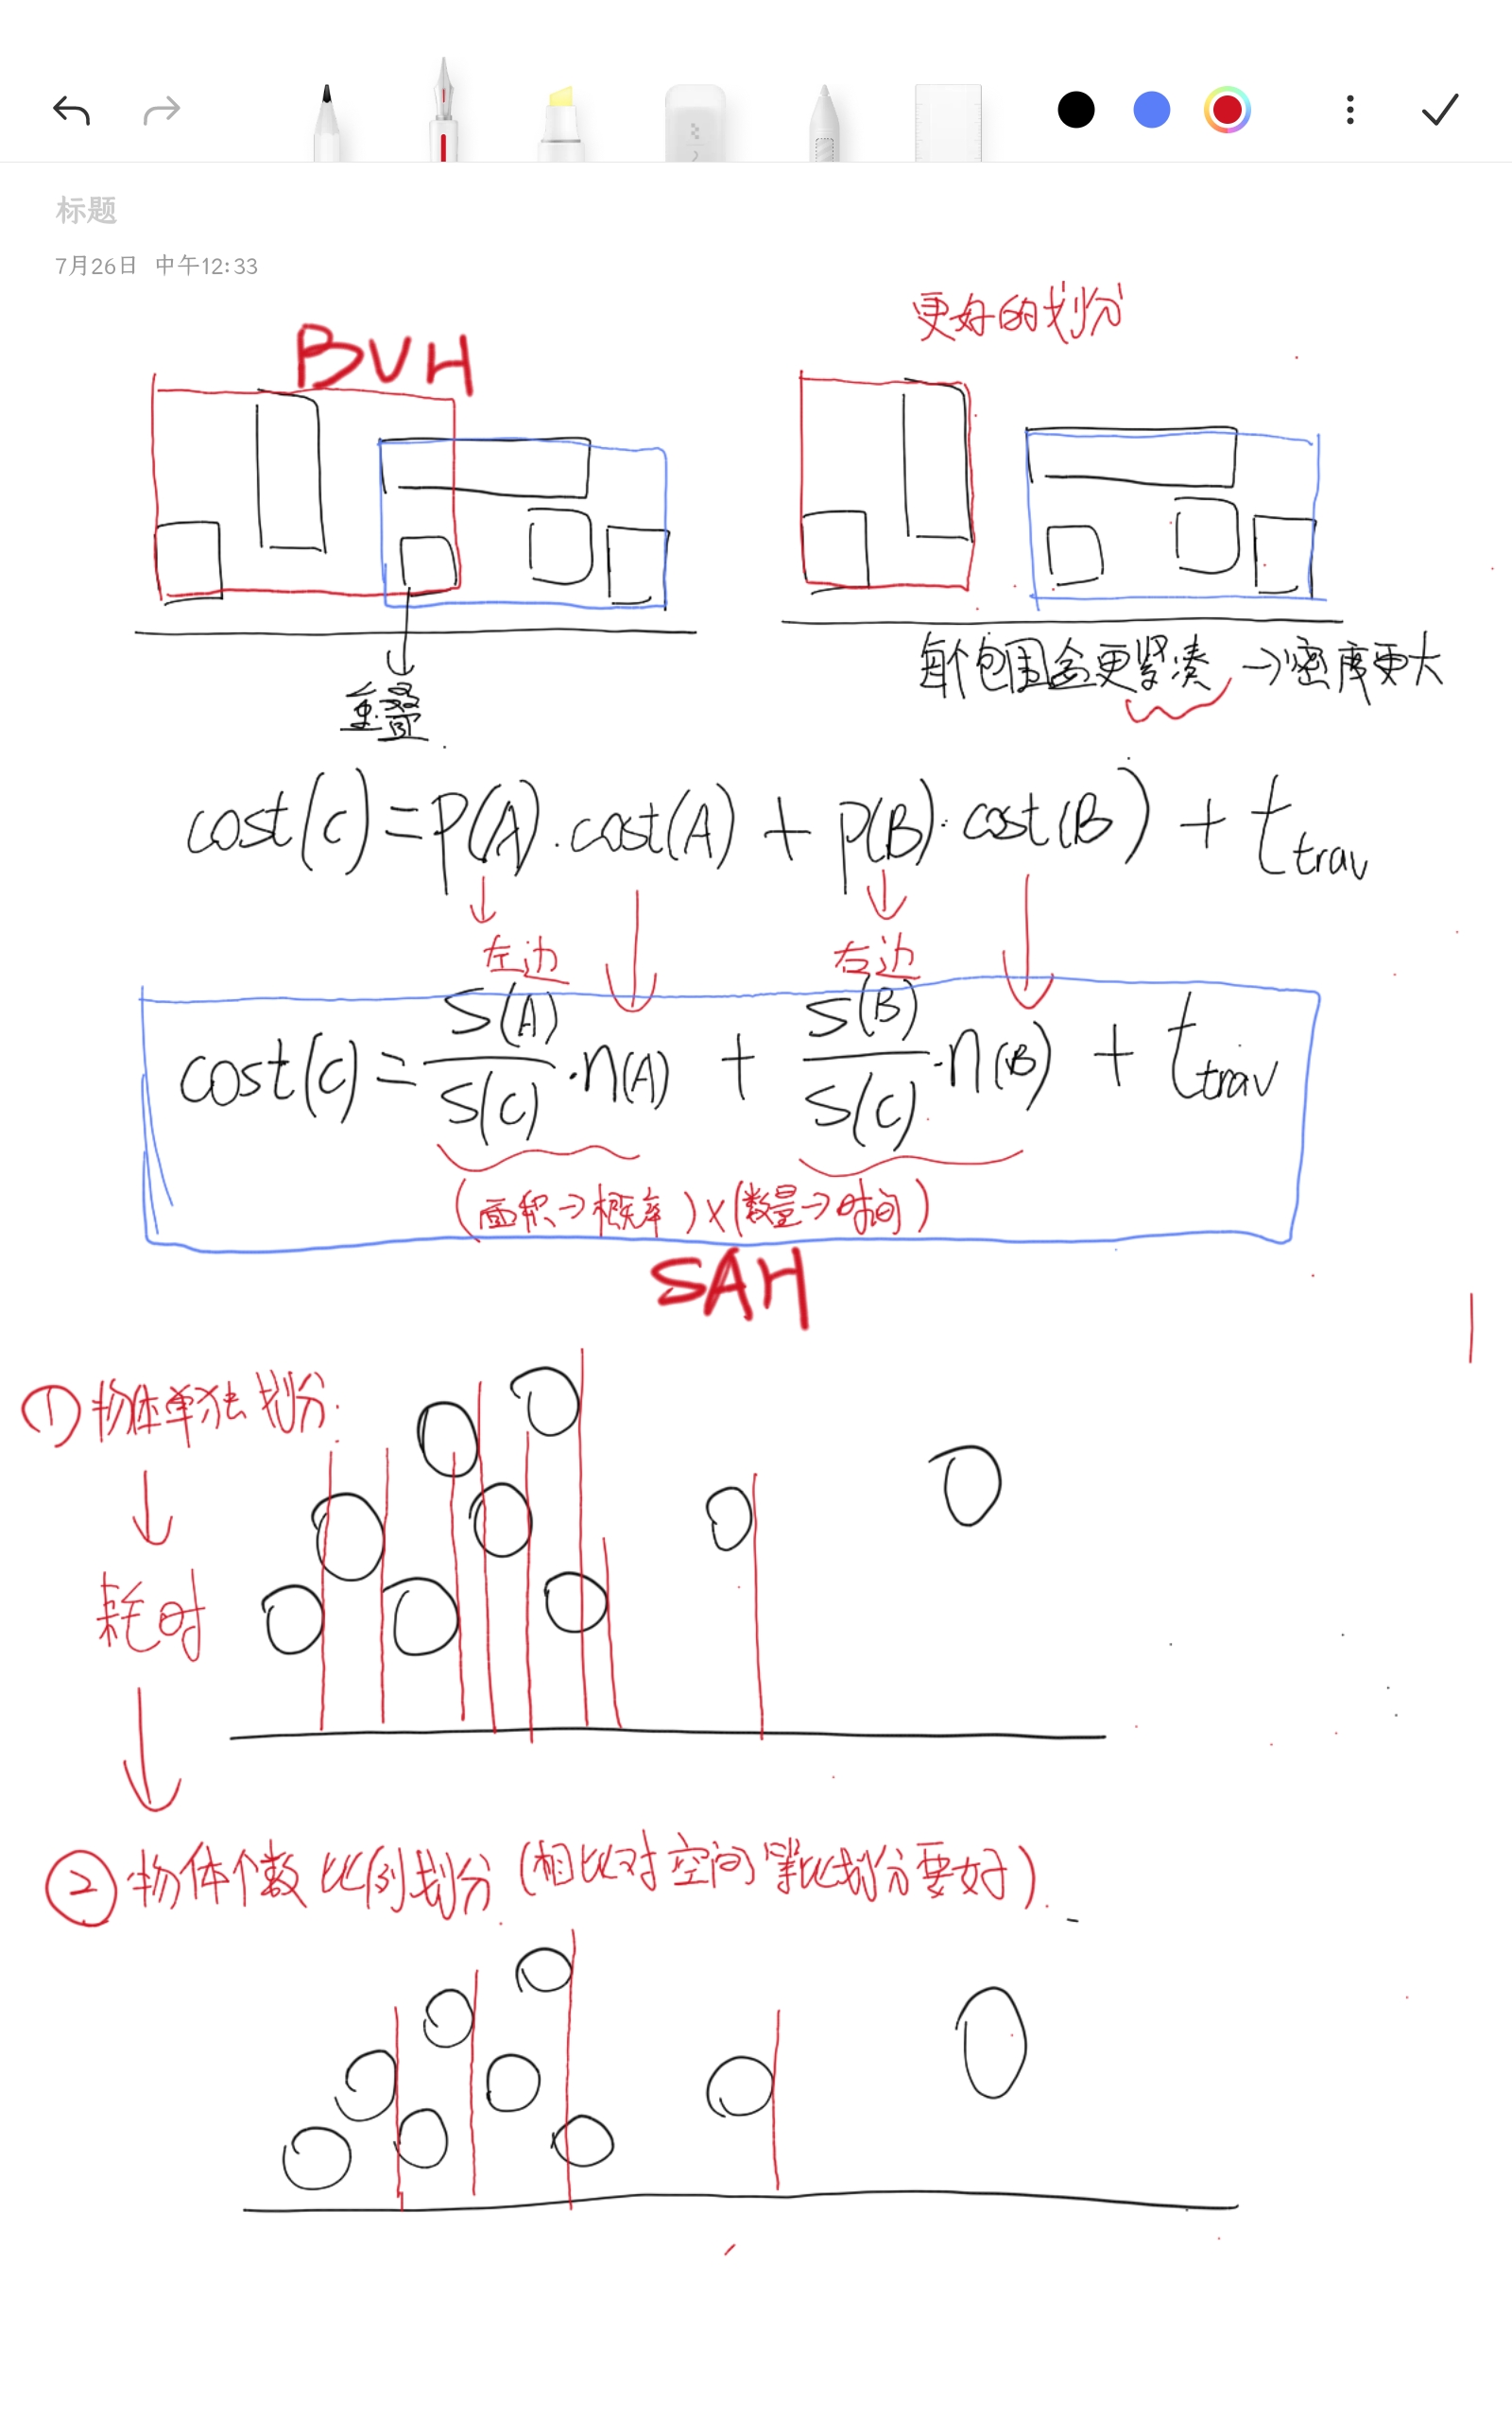 标题
7月26日 中午12:33
更好的划分
BVH
每个包围盒更紧凑 → 密度更大
重叠
cost(c) = p(A)·cost(A) + p(B)·cost(B) + t_trav
左边 右边
cost(c) = S(A)/S(C)·n(A) + S(B)/S(C)·n(B) + t_trav
(面积→概率)×(数量→时间)
SAH
① 物体单独划分:
耗时
② 物体个数比例划分 (相比对空间等比划分要好).